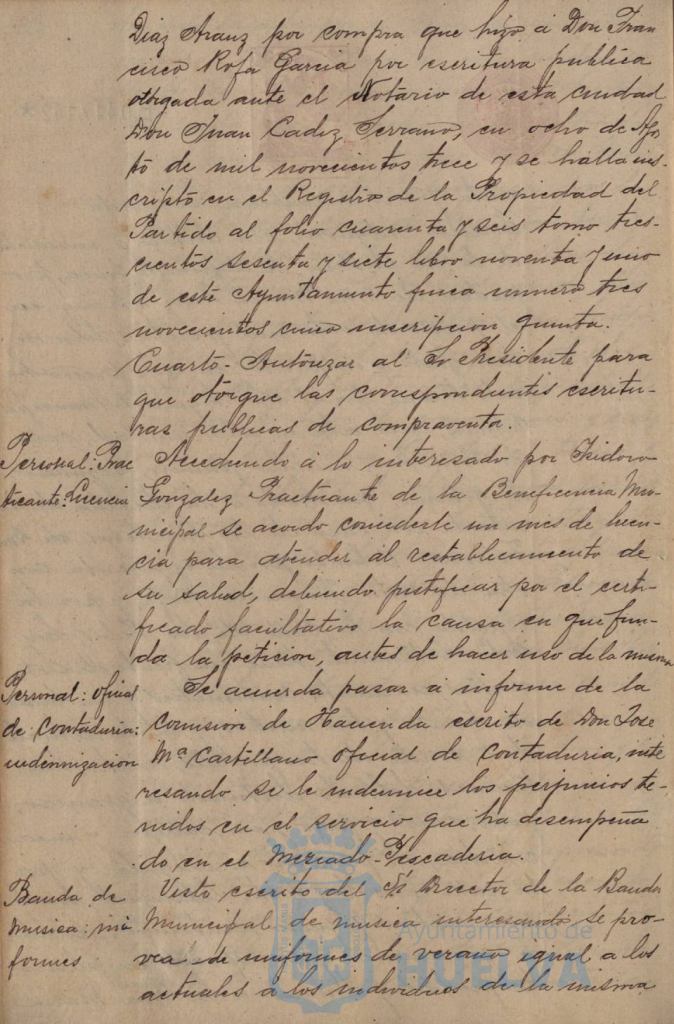 Diaz Aranz por compra que hizo á Don Fran
cisco Rofa Garcia por escritura publica
otorgada ante el Notario de esta ciudad
Don Juan Cadiz Serrano, en ocho de Ags
to de mil novecientos trece y se halla ins-
cripto en el Registro de la Propiedad del
Partido al folio cuarenta y seis tomo tres-
cientos sesenta y siete libro noventa y uno
de este Ayuntamiento finca numero tres
novecientos cinco inscripcion quinta.
Cuarto- Autorizar al Sr Presidente para
que otorgue las correspondientes escritu-
ras publicas de compraventa.
Personal: Prac
ticante: Licencia
Accediendo á lo interesado por Isidoro
Gonzalez Practicante de la Beneficencia Mu-
nicipal se acordo concederle un mes de licen-
cia para atender al restablecimiento de
su salud, debiendo justificar por el certi-
ficado facultativo la causa en que fun-
da la peticion, antes de hacer uso de la misma
Personal: oficial
de Contaduria:
indemnizacion
Se acuerda pasar á informe de la
Comision de Hacienda escrito de Don Jose
Mª Castellano oficial de Contaduria, inte
resando se le indemnice los perjuicios te-
nidos en el servicio que ha desempeña
do en el Mercado-Pescaderia.
Banda de
musica: uni
formes
Visto escrito del Sr Director de la Banda
Municipal de musica interesando se pro-
vea de uniformes de verano igual a los
actuales a los individuos de la misma
Ayuntamiento de
HUELVA